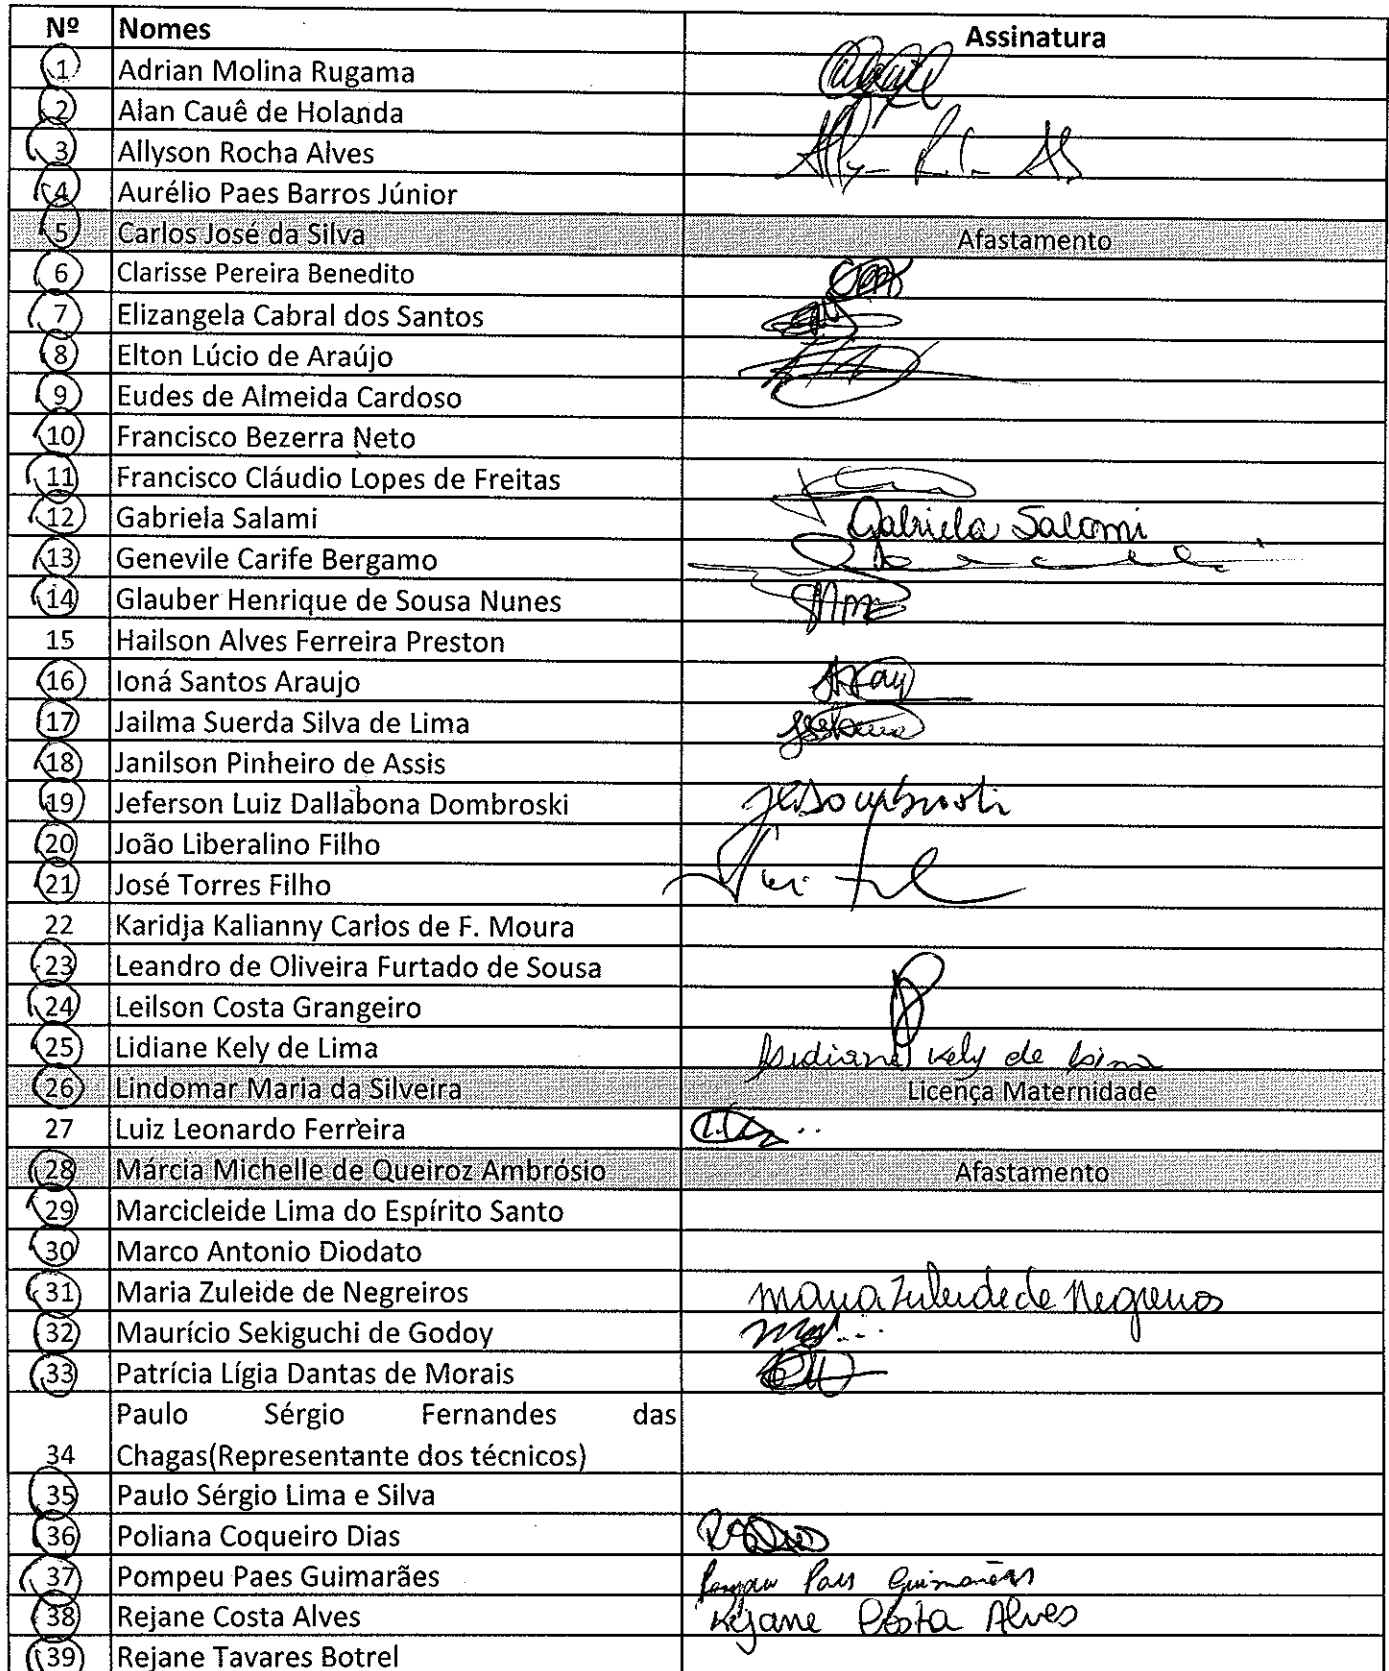 Nº Nomes Assinatura
1 Adrian Molina Rugama
2 Alan Cauê de Holanda
3 Allyson Rocha Alves
4 Aurélio Paes Barros Júnior
5 Carlos José da Silva Afastamento
6 Clarisse Pereira Benedito
7 Elizangela Cabral dos Santos
8 Elton Lúcio de Araújo
9 Eudes de Almeida Cardoso
10 Francisco Bezerra Neto
11 Francisco Cláudio Lopes de Freitas
12 Gabriela Salami Gabriela Salami
13 Genevile Carife Bergamo
14 Glauber Henrique de Sousa Nunes
15 Hailson Alves Ferreira Preston
16 Ioná Santos Araujo
17 Jailma Suerda Silva de Lima
18 Janilson Pinheiro de Assis
19 Jeferson Luiz Dallabona Dombroski
20 João Liberalino Filho
21 José Torres Filho
22 Karidja Kalianny Carlos de F. Moura
23 Leandro de Oliveira Furtado de Sousa
24 Leilson Costa Grangeiro
25 Lidiane Kely de Lima Lidiane Kely de Lima
26 Lindomar Maria da Silveira Licença Maternidade
27 Luiz Leonardo Ferreira
28 Márcia Michelle de Queiroz Ambrósio Afastamento
29 Marcicleide Lima do Espírito Santo
30 Marco Antonio Diodato
31 Maria Zuleide de Negreiros Maria Zuleide de Negreiros
32 Maurício Sekiguchi de Godoy
33 Patrícia Lígia Dantas de Morais
Paulo Sérgio Fernandes das
34 Chagas(Representante dos técnicos)
35 Paulo Sérgio Lima e Silva
36 Poliana Coqueiro Dias
37 Pompeu Paes Guimarães Pompeu Paes Guimarães
38 Rejane Costa Alves Rejane Costa Alves
39 Rejane Tavares Botrel